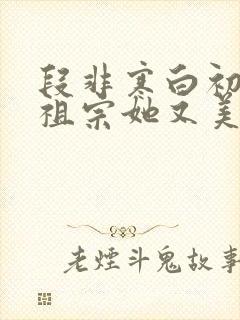 段非寒白初
祖宗她又美
老煙斗鬼故事